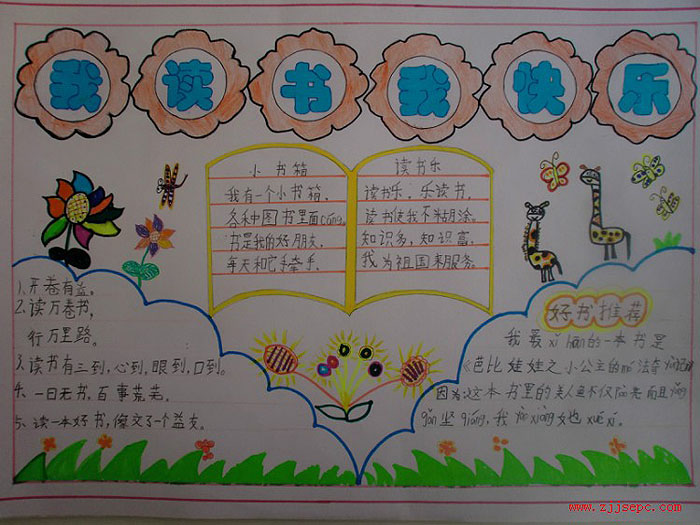 我读书我快乐
小书箱
我有一个小书箱，
各种图书里面cáng。
书是我的好朋友，
每天和它手牵手。
读书乐
读书乐，乐读书，
读书使我不糊涂。
知识多，知识富，
我为祖国来服务。
1.开卷有益。
2.读万卷书，
行万里路。
3.读书有三到，心到，眼到，口到。
4.一日无书，百事荒芜。
5.读一本好书，像交了一个益友。
好书推荐
我最xǐ huan的一本书是
《芭比娃娃之小公主的 法奇
因为这本书里的美人鱼不仅 亮而且
坚qiáng，我 xiàng她xué xí.
www.zjjsepc.com